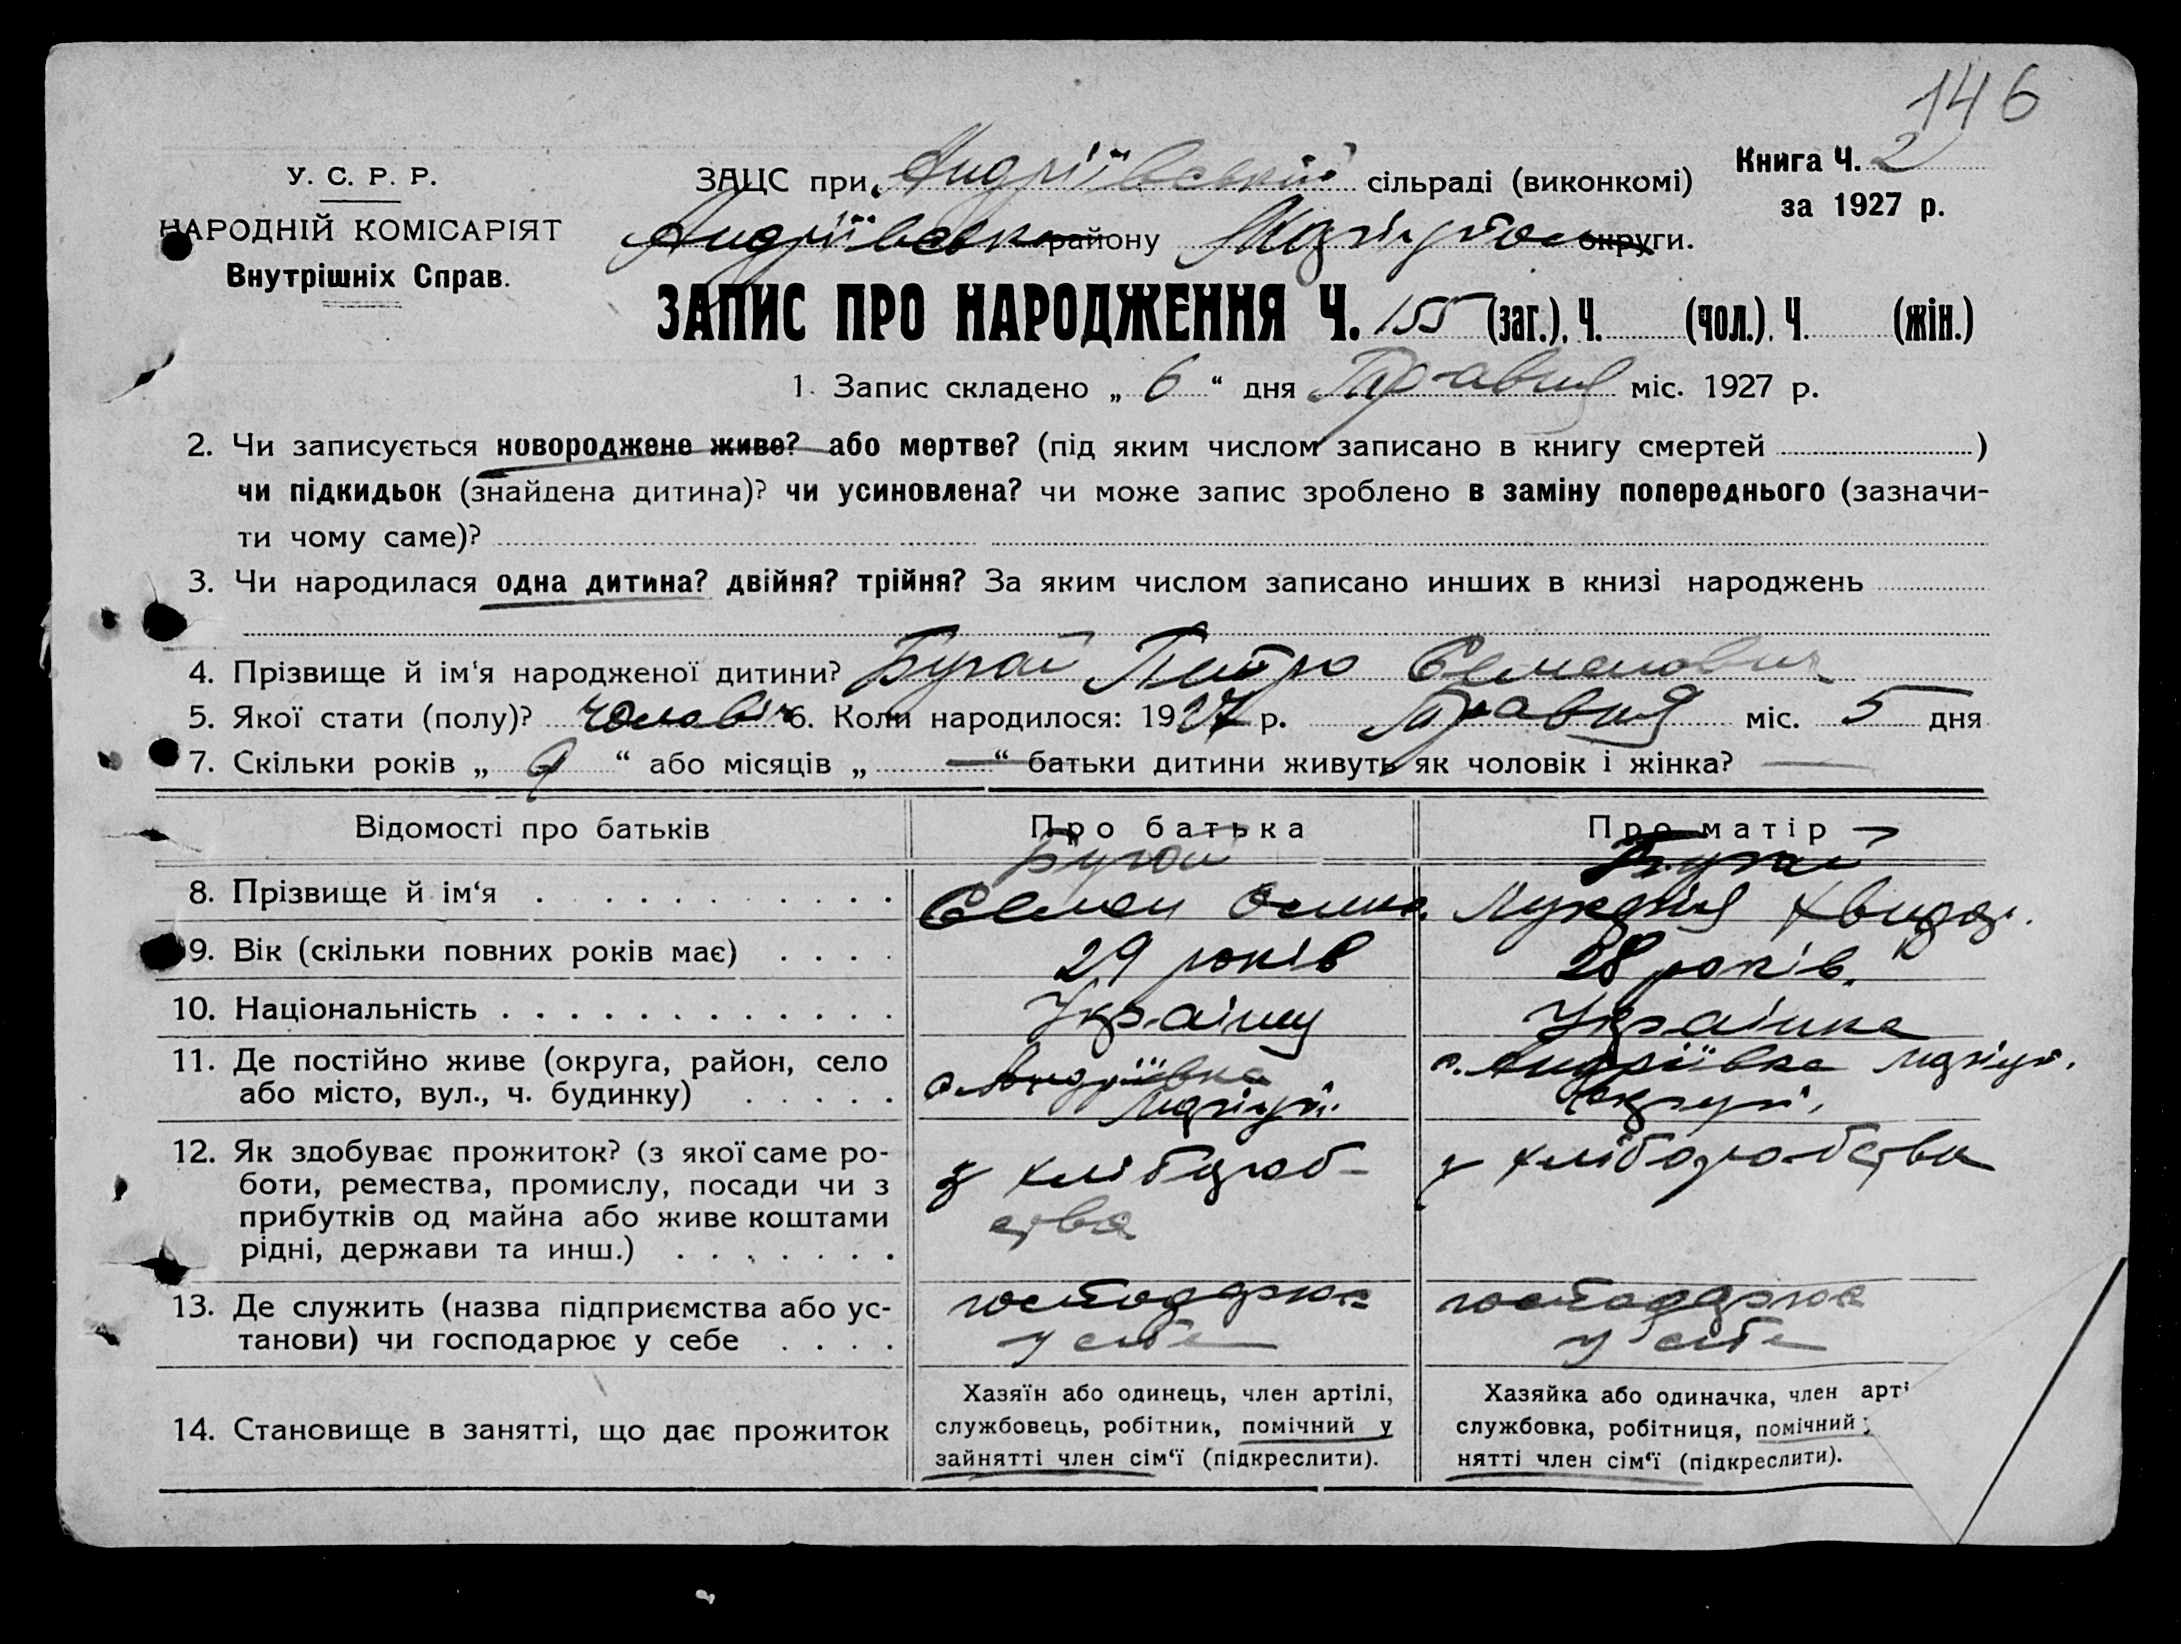 146
У. С. Р. Р.
НАРОДНІЙ КОМІСАРІЯТ
Внутрішніх Справ.
ЗАЦС при Андріївській сільраді (виконкомі)
Книга Ч. 2
за 1927 р.
Андріївськ району округи.
ЗАПИС ПРО НАРОДЖЕННЯ Ч. 155 (заг.), Ч. (чол.), Ч. (жін.)
1. Запис складено „ 6 “ дня Травня міс. 1927 р.
2. Чи записується новороджене живе? або мертве? (під яким числом записано в книгу смертей )
чи підкидьок (знайдена дитина)? чи усиновлена? чи може запис зроблено в заміну попереднього (зазначи-
ти чому саме)?
3. Чи народилася одна дитина? двійня? трійня? За яким числом записано инших в книзі народжень
4. Прізвище й ім‘я народженої дитини? Бугай Петро Семенович
5. Якої стати (полу)? чоловіч 6. Коли народилося: 1927 р. Травня міс. 5 дня
7. Скільки років „ 9 “ або місяців „ — “ батьки дитини живуть як чоловік і жінка? —
Відомості про батьків Про батька Про матір
8. Прізвище й ім‘я Бугай Семен Бугай
9. Вік (скільки повних років має) 29 років 28 років.
10. Національність Українц Українка
11. Де постійно живе (округа, район, село
або місто, вул., ч. будинку) с. Андріївка с. Андріївка округи,
12. Як здобуває прожиток? (з якої саме ро-
боти, ремества, промислу, посади чи з
прибутків од майна або живе коштами
рідні, держави та инш.) з хліборобства з хліборобства
13. Де служить (назва підприємства або ус-
танови) чи господарює у себе господарює у себе господарює у себе
14. Становище в занятті, що дає прожиток
Хазяїн або одинець, член артілі,
службовець, робітник, помічний у
зайнятті член сім‘ї (підкреслити).
Хазяйка або одиначка, член арті
службовка, робітниця, помічний
нятті член сім‘ї (підкреслити).